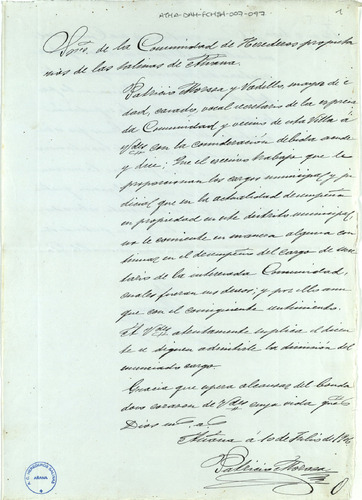 ATHA-DAH-FCHSA-007-097
Sres. de la Comunidad de Herederos propieta
rios de las salinas de Añana.
Patricio Moraza y Vadillo, mayor de e
dad, casado, vocal secretario de la expresa
da Comunidad y vecino de esta Villa á
Vdes con la consideración debida acude
y dice; Que el excesivo trabajo que le
proporcionan los cargos municipal y ju
dicial que en la actualidad desempeña
en propiedad en este distrito municipal,
no le consiente en manera alguna con
tinuar en el desempeño del cargo de secre
tario de la interesada Comunidad,
cuales fueran sus deseos; y por ello aun
que con el consiguiente sentimiento.
A Vdes atentamente suplica el dicen
te se dignen admitirle la dimisión del
enunciado cargo.
Gracia que espera alcanzar del bonda
doso corazon de Vdes cuya vida gue
Dios m. a.
Añana á 10 de Julio de
Patricio Moraza
AÑANA